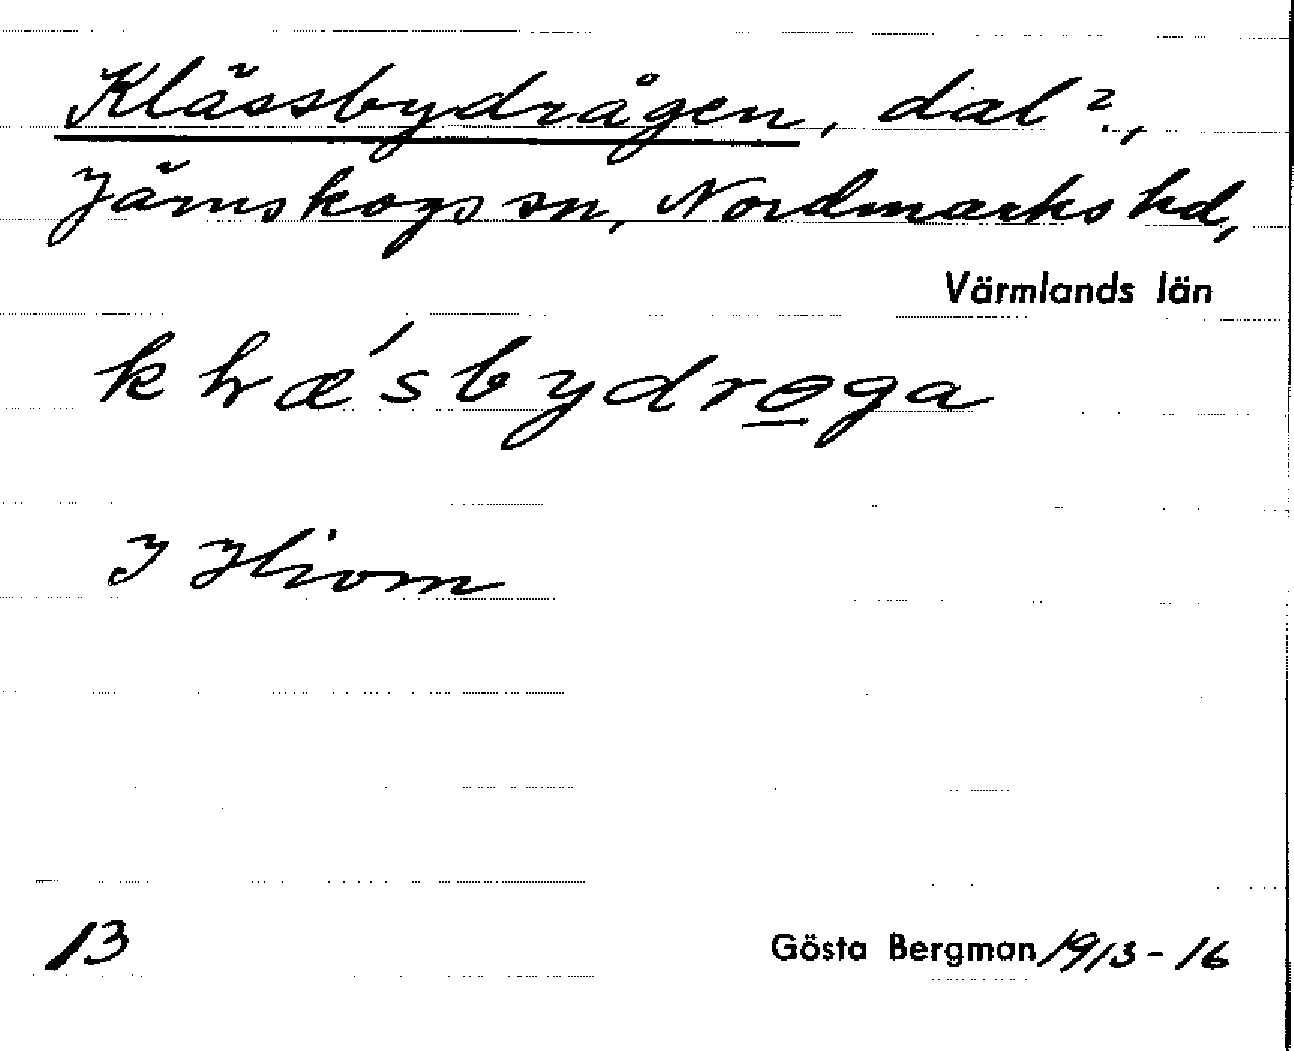 Klässbydrågen, dal?,
Järnskogs sn, Nordmarks hd,
Värmlands län
klræ´sbydrøga
I Hivom
13
Gösta Bergman 1913-16